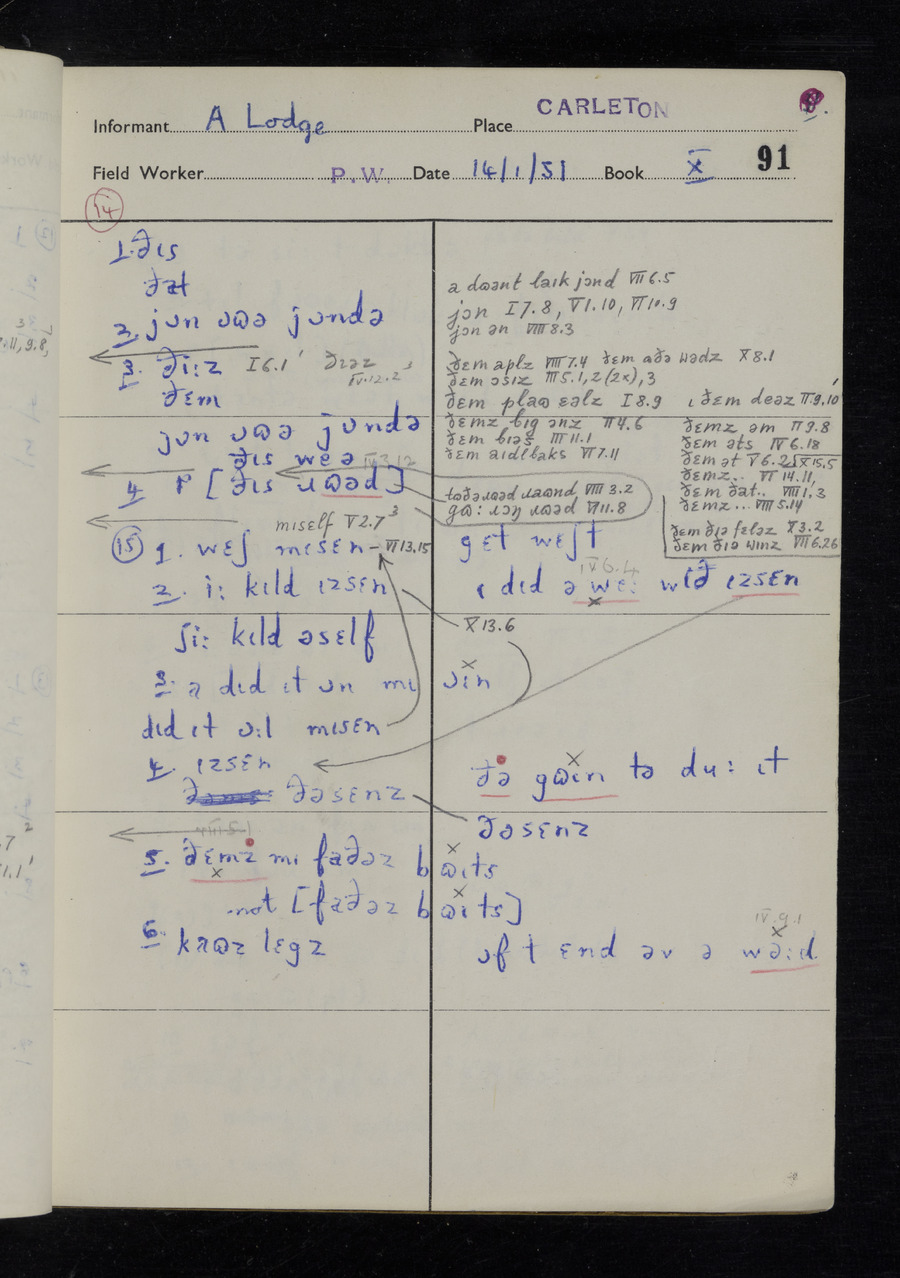 Informant A Lodge Place CARLETON
Field Worker P.W. Date 14/1/51 Book X 91
14
1. ðɪs
ðat
2. jɒn ɒʊə jɒndə
3. ði:z I 6.1 ðɪəz IV.12.2
ðɛm
jɒn ɒʊə jɒndə
ðɪs weə IV 3.12
4. P [ðɪs ɹʊəd]
a dʊənt laɪk jɔnd VIII 6.5
jɔn I 7.8, VI.10, VII 10.9
jɔn ən VIII 8.3
ðɛm aplz VIII 7.4 ðɛm aðə wədz X 8.1
ðɛm ɔsɪz III 5.1, 2 (2x), 3
ðɛm plaʊ ɛəlz I 8.9 ɪ ðɛm deəz II.9.10
ðɛmz bɪg ənz II 4.6 ðɛmz əm II 9.8
ðɛm bɪəs III 11.1 ðɛm əts IV 6.18
ðɛm aɪdlbaks VI 7.11 ðɛm ət V 6.2 X 15.5
ðɛmz.. VI 14.11,
təðəɹʊəd ɹaʊnd VIII 3.2 ðɛm ðat.. VIII 1, 3
gʊ: ɹɔŋ ɹʊəd VII 11.8 ðɛmz... VIII 5.14
ðɛm ðɪə fɛləz X 3.2
ðɛm ðɪə wɪnz VII 6.26
miself V 2.7
15 1. weʃ mɪsɛn – VI 13,15 gɛt weʃt
2. i: kɪld ɪzsɛn ɪ dɪd ə we: wɪð ɪzsɛn
IV 6.4
ʃi: kɪld əsɛlf X 13.6
3. a dɪd ɪt ɒn mɪ ɒɪn
dɪd ɪt ɒ:l mɪsɛn
4. ɪzsɛn ðə gʊɪn tə du: ɪt
ðəsɛnz ðəsɛnz
5. ðɛmz mɪ faðəz bʊɪts
not [faðəz bʊɪts]
6. kaʊz lɛgz ɒf t ɛnd əv ə wə:ɪd
IV.9.1